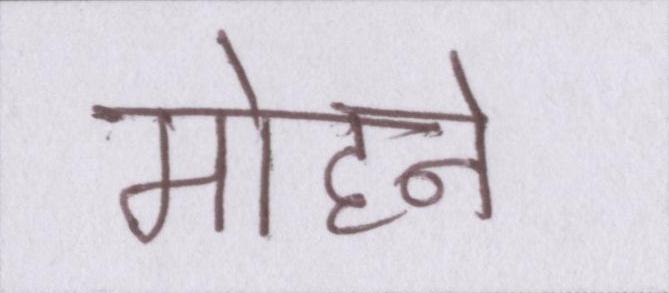 मोहने